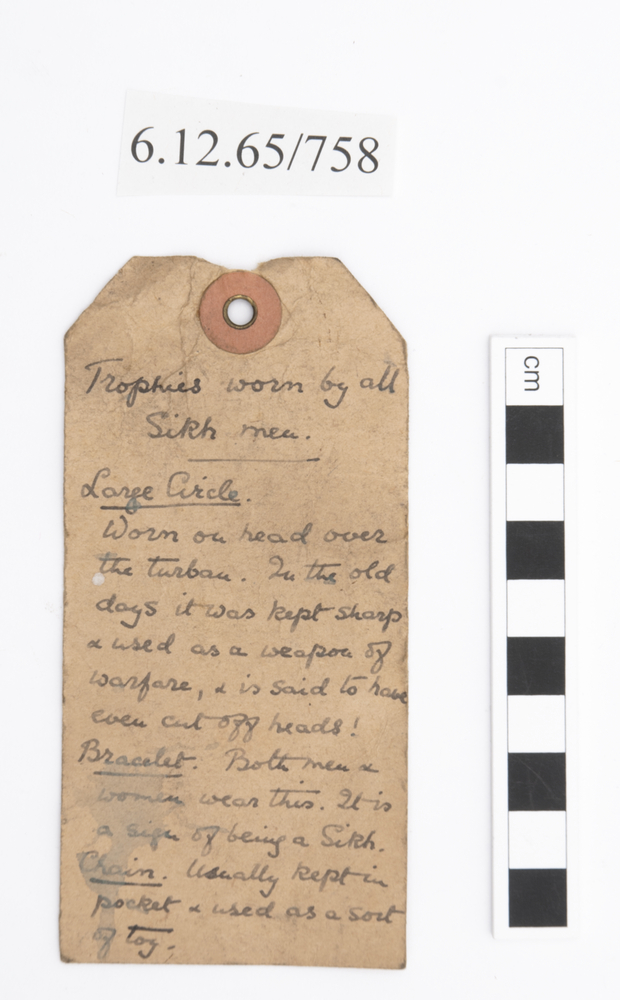 6.12.65/758
Trophies worn by all
Sikh men.
Large Circle.
Worn on head over
the turban. In the old
days it was kept sharp
& used as a weapon of
warfare, & is said to have
even cut off heads!
Bracelet. Both men &
women wear this. It is
a sign of being a Sikh.
Chain. Usually kept in
pocket & used as a sort
of toy.
cm